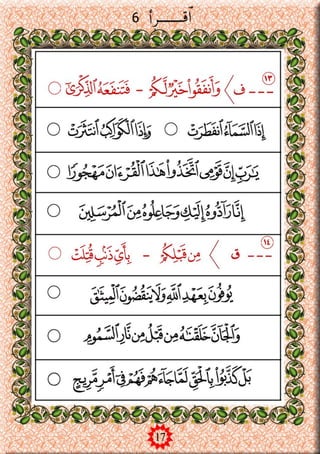 ٱقـــرأ 6
١٣
--- ف 〈 وَأَنفَقُوا۟ خَيْرٌ لَّكُمْ - فَتَنفَعَهُ ٱلذِّكْرَىٰٓ ○
إِذَا ٱلسَّمَآءُ ٱنفَطَرَتْ ○ وَإِذَا ٱلْكَوَاكِبُ ٱنتَثَرَتْ ○
يَٰرَبِّ إِنَّ قَوْمِى ٱتَّخَذُوا۟ هَٰذَا ٱلْقُرْءَانَ مَهْجُورًا ○
إِنَّا رَآدُّوهُ إِلَيْكِ وَجَاعِلُوهُ مِنَ ٱلْمُرْسَلِينَ ○
١٤
--- ق 〈 مِن قَبْلِكُمْ - بِأَىِّ ذَنۢبٍ قُتِلَتْ ○
يُوفُونَ بِعَهْدِ ٱللَّهِ وَلَا يَنقُضُونَ ٱلْمِيثَٰقَ ○
وَٱلْجَآنَّ خَلَقْنَٰهُ مِن قَبْلُ مِن نَّارِ ٱلسَّمُومِ ○
بَلْ كَذَّبُوا۟ بِٱلْحَقِّ لَمَّا جَآءَهُمْ فَهُمْ فِىٓ أَمْرٍ مَّرِيجٍ ○
17